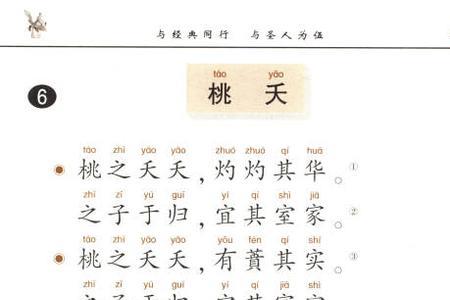 与经典同行 与圣人为伍
táo yāo
6 桃 夭
táo zhī yāo yāo zhuó zhuó qí huā
桃之夭夭，灼灼其华。①
zhī zǐ yú guī yí qí shì jiā
之子于归，宜其室家。②
táo zhī yāo yāo yǒu fén qí shí
桃之夭夭，有蕡其实。③
zhī zǐ yú guī yí qí jiā shì